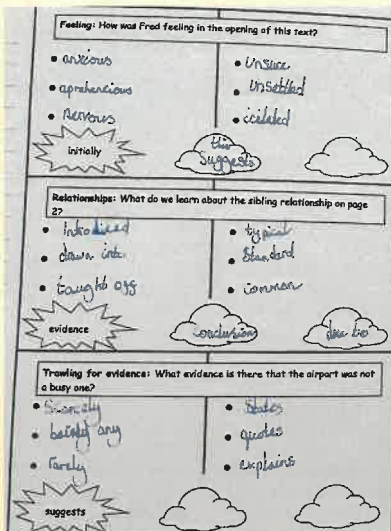 Feeling: How was Fred feeling in the opening of this text?
• anxious
• aprehencious
• Nervous
• Unsure
• Unsettled
• icilated
initially
this
Suggests
Relationships: What do we learn about the sibling relationship on page
2?
• drawn into
• taught off
• typical
• Standard
• common
evidence
conclusion
due to
Trawling for evidence: What evidence is there that the airport was not
a busy one?
• Scarcely
• any
• rarely
• States
• quotes
• explains
suggests